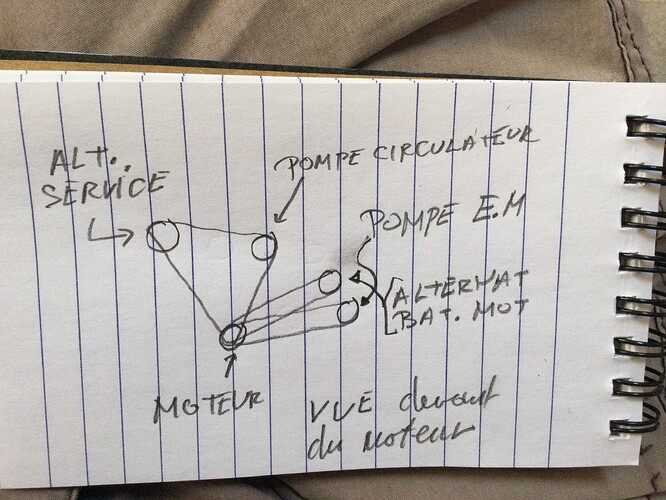 ALT.
SERVICE
POMPE CIRCULATEUR
POMPE E.M
ALTERNAT
BAT. MOT
MOTEUR
VUE devant
du moteur